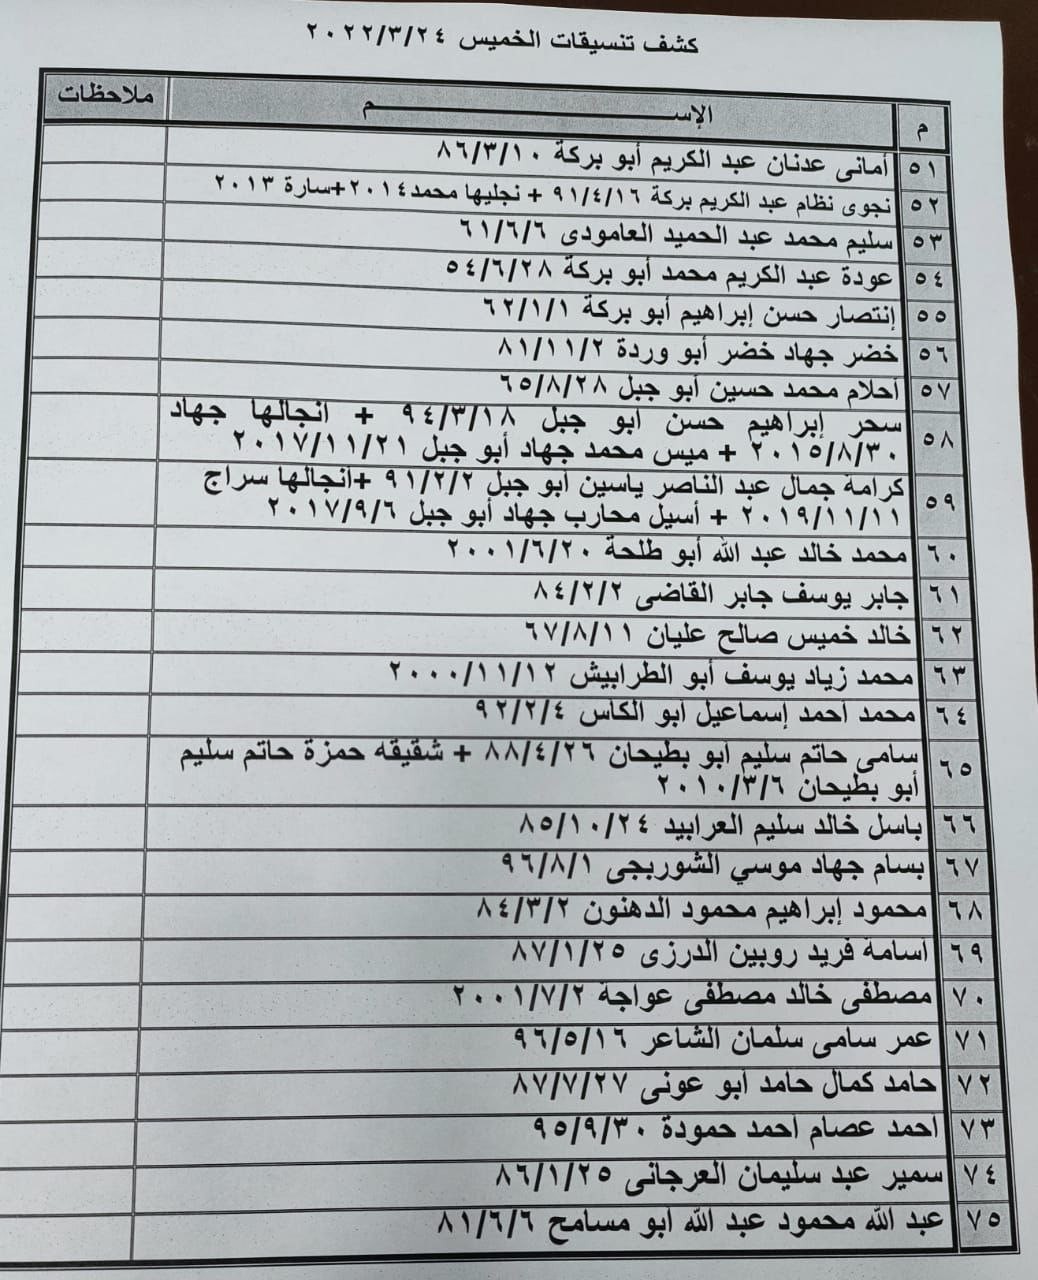 كشف تنسيقات الخميس ٢٠٢٢/٣/٢٤
م الإســـــــــم ملاحظات
٥١ أمانى عدنان عبد الكريم أبو بركة ٨٦/٣/١٠
٥٢ نجوى نظام عبد الكريم بركة ٩١/٤/١٦ + نجليها محمد٢٠١٤+سارة ٢٠١٣
٥٣ سليم محمد عبد الحميد العامودى ٦١/٦/٦
٥٤ عودة عبد الكريم محمد أبو بركة ٥٤/٦/٢٨
٥٥ إنتصار حسن إبراهيم أبو بركة ٦٢/١/١
٥٦ خضر جهاد خضر أبو وردة ٨١/١١/٢
٥٧ أحلام محمد حسين أبو جبل ٦٥/٨/٢٨
٥٨ سحر إبراهيم حسن أبو جبل ٩٤/٣/١٨ + أنجالها جهاد
٢٠١٥/٨/٣٠ + ميس محمد جهاد أبو جبل ٢٠١٧/١١/٢١
٥٩ كرامة جمال عبد الناصر ياسين أبو جبل ٩١/٢/٢ +أنجالها سراج
٢٠١٩/١١/١١ + أسيل محارب جهاد أبو جبل ٢٠١٧/٩/٦
٦٠ محمد خالد عبد الله أبو طلحة ٢٠٠١/٦/٢٠
٦١ جابر يوسف جابر القاضى ٨٤/٢/٢
٦٢ خالد خميس صالح عليان ٦٧/٨/١١
٦٣ محمد زياد يوسف أبو الطرابيش ٢٠٠٠/١١/١٢
٦٤ محمد أحمد إسماعيل أبو الكاس ٩٢/٢/٤
٦٥ سامى حاتم سليم أبو بطيحان ٨٨/٤/٢٦ + شقيقه حمزة حاتم سليم
أبو بطيحان ٢٠١٠/٣/٦
٦٦ باسل خالد سليم العرابيد ٨٥/١٠/٢٤
٦٧ بسام جهاد موسي الشوربجى ٩٦/٨/١
٦٨ محمود إبراهيم محمود الدهنون ٨٤/٣/٢
٦٩ أسامة فريد روبين الدرزى ٨٧/١/٢٥
٧٠ مصطفى خالد مصطفى عواجة ٢٠٠١/٧/٢
٧١ عمر سامى سلمان الشاعر ٩٦/٥/١٦
٧٢ حامد كمال حامد أبو عونى ٨٧/٧/٢٧
٧٣ أحمد عصام أحمد حمودة ٩٥/٩/٣٠
٧٤ سمير عبد سليمان العرجانى ٨٦/١/٢٥
٧٥ عبد الله محمود عبد الله أبو مسامح ٨١/٦/٦